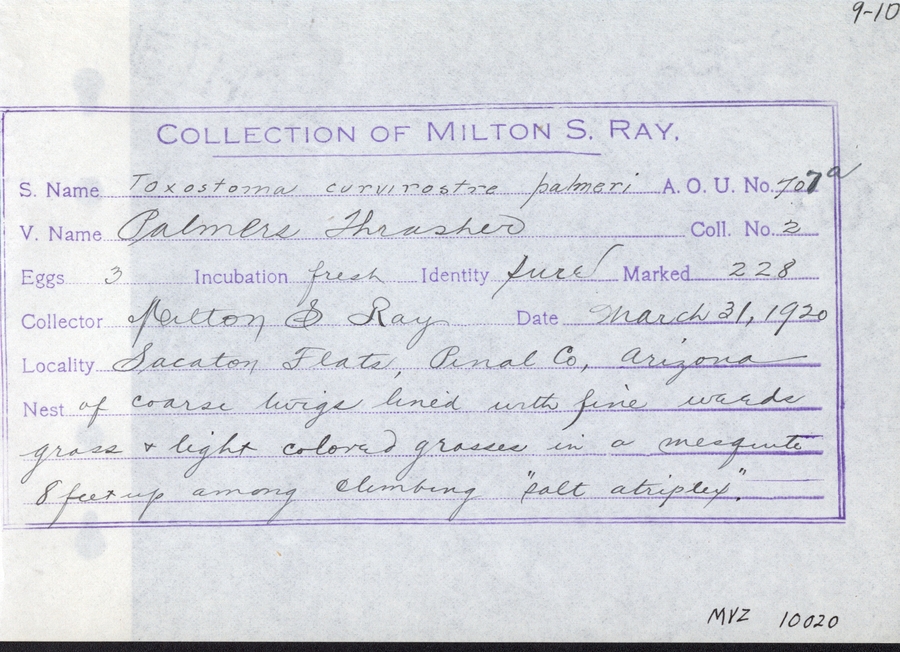 9-10
COLLECTION OF MILTON S. RAY.
S. Name Toxostoma curvirostre palmeri A. O. U. No. 707a
V. Name Palmers Thrasher Coll. No. 2
Eggs 3 Incubation fresh Identity sure Marked 228
Collector Milton S Ray Date March 31, 1920
Locality Sacaton Flats, Pinal Co, Arizona
Nest of coarse twigs lined with fine weeds
grass + light colored grasses in a mesquite
8 feet up among climbing "salt atriplex".
MVZ 10020